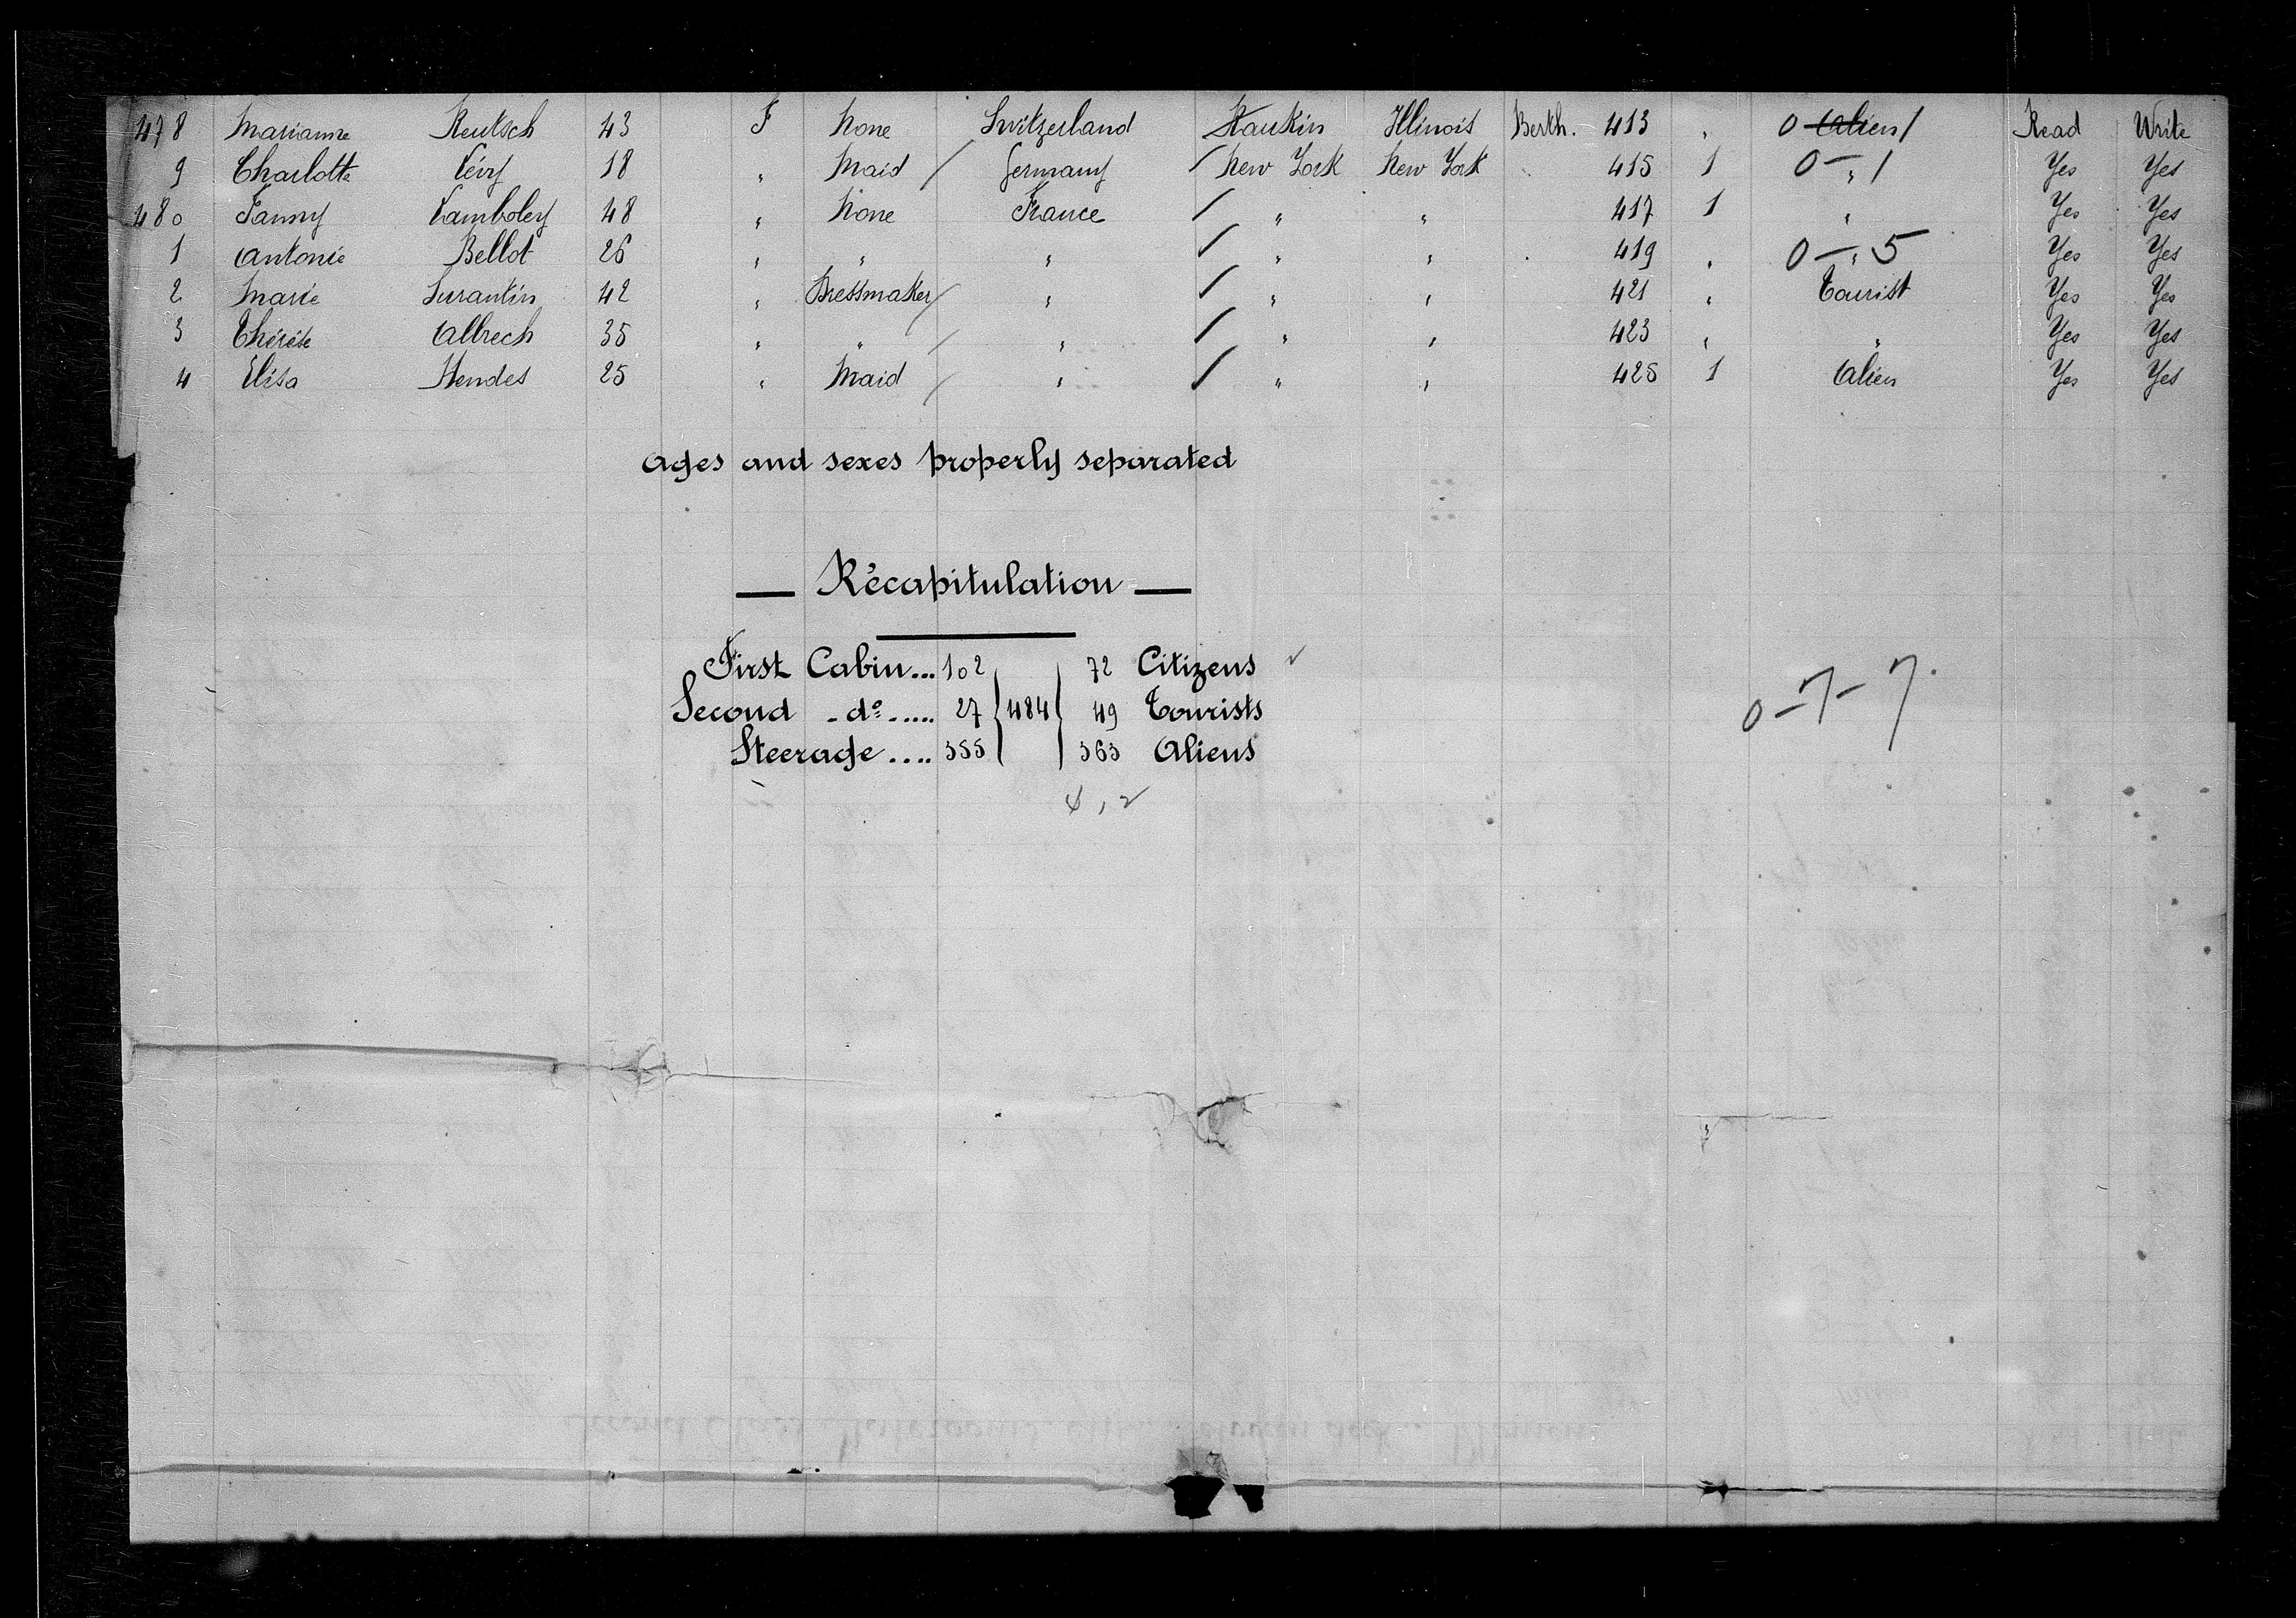 478 Marianne Reutsch 43 F None Switzerland Rankin Illinois Berth. 413 " 0 Alien / Read Write
9 Charlotte Lévy 18 " Maid / Germany / New York New York 415 1 0 — " 1 Yes Yes
480 Fanny Lamboley 48 " None France / " " 417 1 " Yes Yes
1 Antonie Bellot 26 " " " / " " 419 " 0 — " 5 Yes Yes
2 Marie 42 " Dressmaker / " / " " 421 " Tourist Yes Yes
3 Thérèse Albrech 35 " " / " / " " 423 " " Yes Yes
4 Elisa Hendes 25 " Maid / " / " " 425 1 Alien Yes Yes
Ages and sexes properly separated
— Récapitulation —
First Cabin... 102 72 Citizens ✓
Second - do - ..... 27 } 484 { 49 Tourists
Steerage .... 355 363 Aliens
0-7-7.